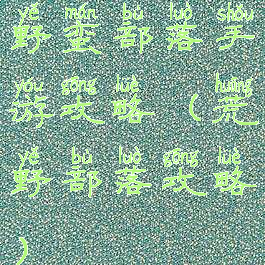 yě mán bù luò shǒu
野蛮部落手
yóu gōng lüè huāng
游攻略（荒
yě bù luò gōng lüè
野部落攻略
）